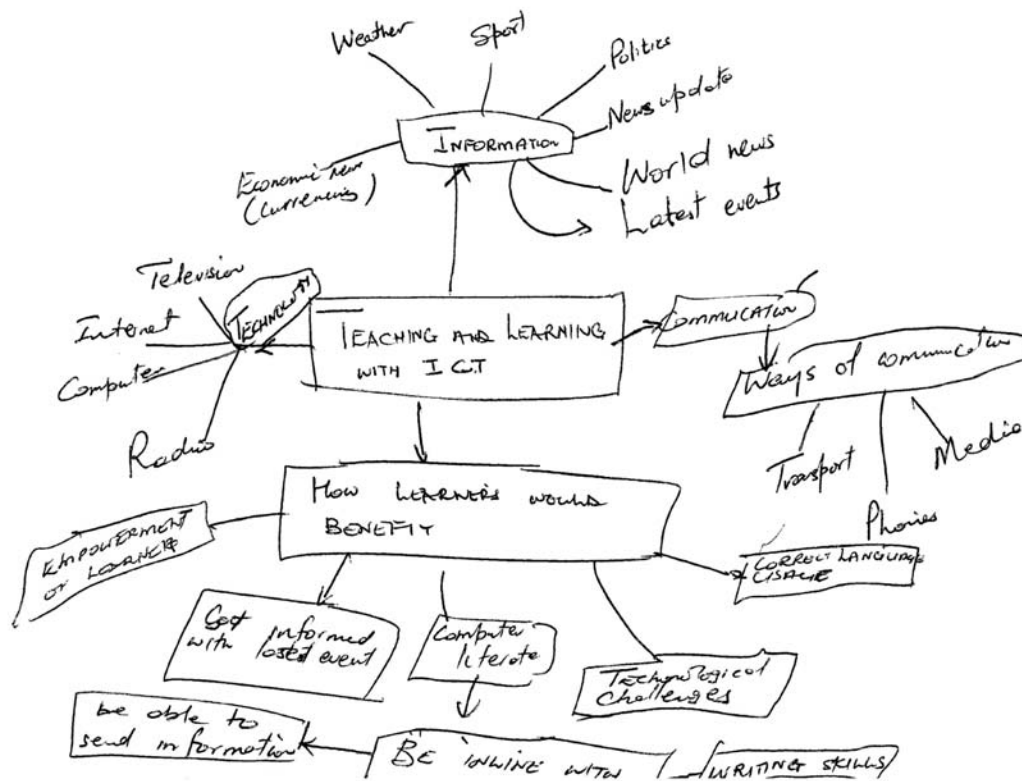 Weather
Sport
Politics
News update
INFORMATION
World news
Economic news
(Currencies)
Latest events
Television
TECHNOLOGY
Internet
Computer
Radio
TEACHING AND LEARNING
WITH ICT
COMMUCATION
Ways of communication
Transport
Media
Phones
HOW LEARNERS WOULD
BENEFIY
EMPOWERMENT
OF LEARNERS
CORRECT LANGUAGE
USAGE
Get informed
with latest event
Computer
literate
Technological
challenges
be able to
send information
BE INLINE WITH
WRITING SKILLS